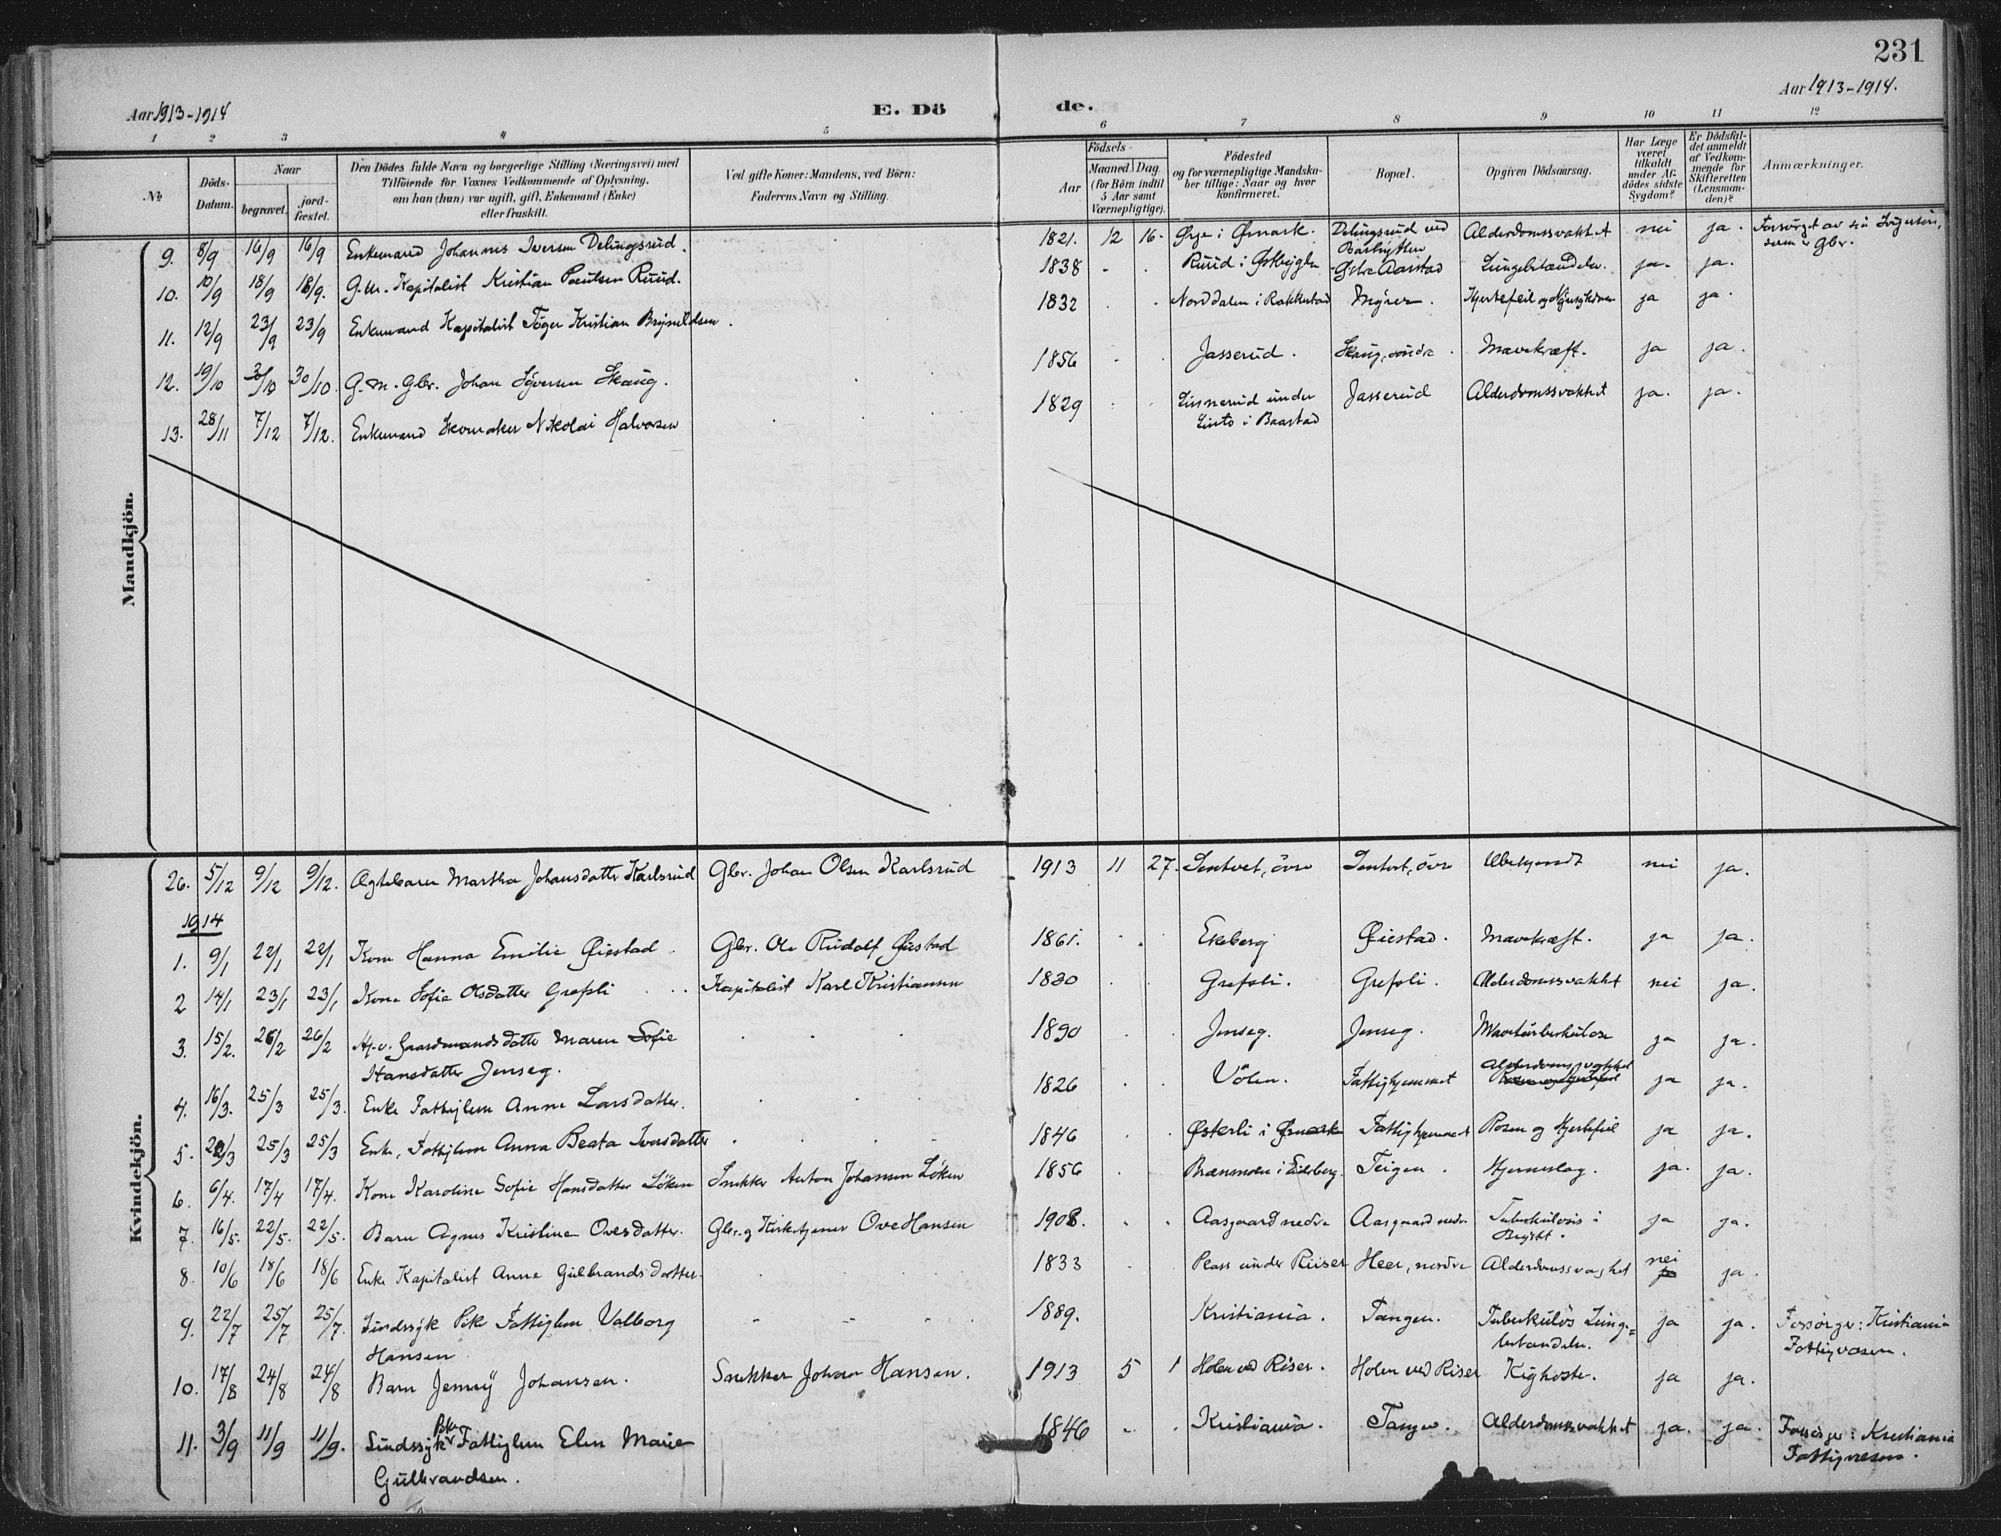 231
Aar 1913-1914
E. Dö de.
Aar 1913-1914.
1 2 3 4 5 6 7 8 9 10 11 12
№
Döds-Datum.
Naar
begravet.
jordfæstet.
Den Dödes fulde Navn og borgerlige Stilling (Næringsvei) med
Tilföiende for Voxnes Vedkommende af Oplysning,
om han (hun) var ugift, gift, Enkemand (Enke)
eller fraskilt.
Ved gifte Koner: Mandens, ved Börn:
Faderens Navn og Stilling.
Födsels-
Aar
Maaned Dag
(for Börn indtil
5 Aar samt
Værnepligtige).
Födested
og for værnepligtige Mandska-
ber tillige: Naar og hvor
konfirmeret.
Bopæl.
Opgiven Dödsaarsag.
Har Læge
været
tilkaldt
under Af-
dödes sidste
Sygdom?
Er Dödsfal-
det anmeldt
af Vedkom-
mende for
Skifteretten
(Lensman-
den)?
Anmærkninger.
Mandkjön.
9. 8/9 16/9 16/9 Enkemand Johannes Iversen Delingsrud. 1821. 12 16. Ørje i Ømark. Delingsrud ved Alderdomssvakhet nei ja. Forsörget av sin
som er Gbr.
10. 10/9 18/9 18/9. G.m. Kapitalist Kristian Poulsen Ruud. 1838 Ruud i Østre Aarstad Lungebetændelse. ja. ja.
11. 12/9 23/9 23/9 Enkemand Kapitalist Töger Kristian Brynildsen. 1832 Norddalen i Rakkestad Hjertefeil og ja ja.
12. 19/10 30/10 30/10. G.m. Gbr. Johan Skaug. 1856 Jasserud. Skaug, söndre. Mavekræft. ja ja.
13. 28/11 7/12 7/12. Enkemand Skomaker Nikolai Halvorsen 1829 Linnerud under Jasserud Alderdomssvakhet ja. ja.
i Baastad
Kvindekjön.
26. 5/12 9/12 9/12. Ægtebaren Martha Johansdatter Karlsrud Gbr. Johan Olsen Karlsrud 1913 11 27. Sentvet, övre Sentvet, övre Ubekjendt nei ja.
1914
1. 9/1 22/1 22/1 Kone Hanna Emilie Øiestad Gbr. Ole Rudolf Øiestad 1861. Ekeberg Øiestad. Mavekræft. ja ja.
2 14/1 23/1 23/1 Kone Sofie Olsdatter Grefsli Kapitalist Karl Kristiansen 1830 Grefsli. Grefsli. Alderdomssvakhet nei ja.
3. 15/2. 26/2 26/2 Gaardmandsdatter Maren Sofie 1890 Jenseg. Jenseg. Mavetuberkulose ja ja.
Hansdatter Jenseg.
4. 16/3. 25/3 25/3. Enke Fattiglem Anne Larsdatter. 1826 Völen. Fattighjemmet Alderdomssvakhet ja ja.
5. 22/3 25/3 25/3 Enke, Fattiglem Anna Beata Iversdatter 1846 Østerli i Ømark Fattighjemmet Rosen og Hjertefeil ja ja.
6. 6/4. 17/4 17/4. Kone Karoline Sofie Hansdatter Löken Snekker Anton Johansen Löken 1856 i Eidsberg. Teigen. Hjerneslag. ja. ja.
7. 16/5. 22/5. 22/5. Barn Agnes Kristine Ovesdatter. Gbr. og Kirketjener Ove Hansen 1908. Aasgaard nedre Aasgaard nedre Tuberkulosis i ja ja.
Brystet.
8. 10/6 18/6 18/6 Enke Kapitalist Anne Gulbrandsdatter. 1833 Plass under Riiser Heer, nordre Alderdomssvaghet nei ja.
9. 22/7 25/7 25/7. Sindssyk Pike Fattiglem Valborg 1889. Kristiania. Tangen. Tuberkulös Lunge= ja ja. Forsörger: Kristiania
Hansen betændelse. Fattigvæsen.
10. 17/8 24/8 24/8 Barn Jenny Johansen. Snekker Johan Hansen. 1913 5 1 Holen ved Riser. Holen ved Riser Kighoste. ja ja.
11. 3/9 11/9 11/9. Sindssyk Pike Fattiglem Elen Marie 1846 Kristiania. Tangen. Alderdomssvakhet ja. ja. Forsörger: Kristiania
Gulbrandsen. Fattigvæsen.